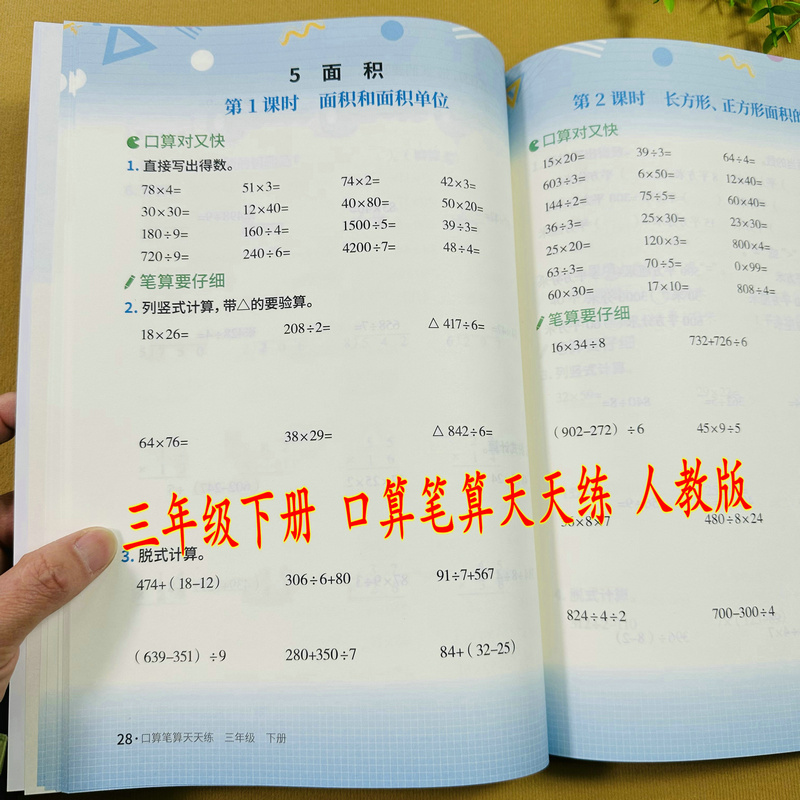 5 面 积
第1课时 面积和面积单位
口算对又快
1. 直接写出得数。
78×4= 51×3= 74×2= 42×3=
30×30= 12×40= 40×80= 50×20=
180÷9= 160÷4= 1500÷5= 39÷3=
720÷9= 240÷6= 4200÷7= 48÷4=
笔算要仔细
2. 列竖式计算，带△的要验算。
18×26= 208÷2= △ 417÷6=
64×76= 38×29= △ 842÷6=
3. 脱式计算。
474+（18–12） 306÷6+80 91÷7+567
（639–351）÷9 280+350÷7 84+（32–25）
28·口算笔算天天练 三年级 下册
第2课时 长方形、正方形面积的
口算对又快
15×20= 39÷3= 64÷4=
603÷3= 6×50= 12×40=
144÷2= 75÷5= 60×40=
36÷3= 25×30= 23×30=
25×20= 120×3= 800×4=
63÷3= 70÷5= 0×99=
60×30= 17×10= 808÷4=
笔算要仔细
16×34÷8 732+726÷6
（902–272）÷6 45×9÷5
480÷8×24
824÷4÷2 700–300÷4
三年级下册 口算笔算天天练 人教版